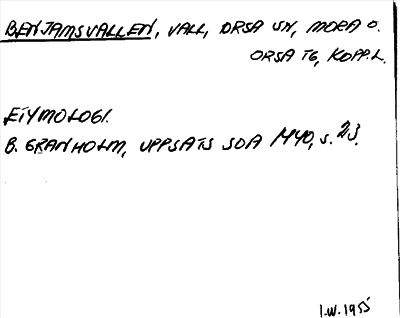 BENJAMSVALLEN, VALL, ORSA SN, MORA O.
ORSA TG, KOPP.L.
ETYMOLOGI.
B. GRANHOLM, UPPSATS SOA 1940, s. 23.
I.W. 1955